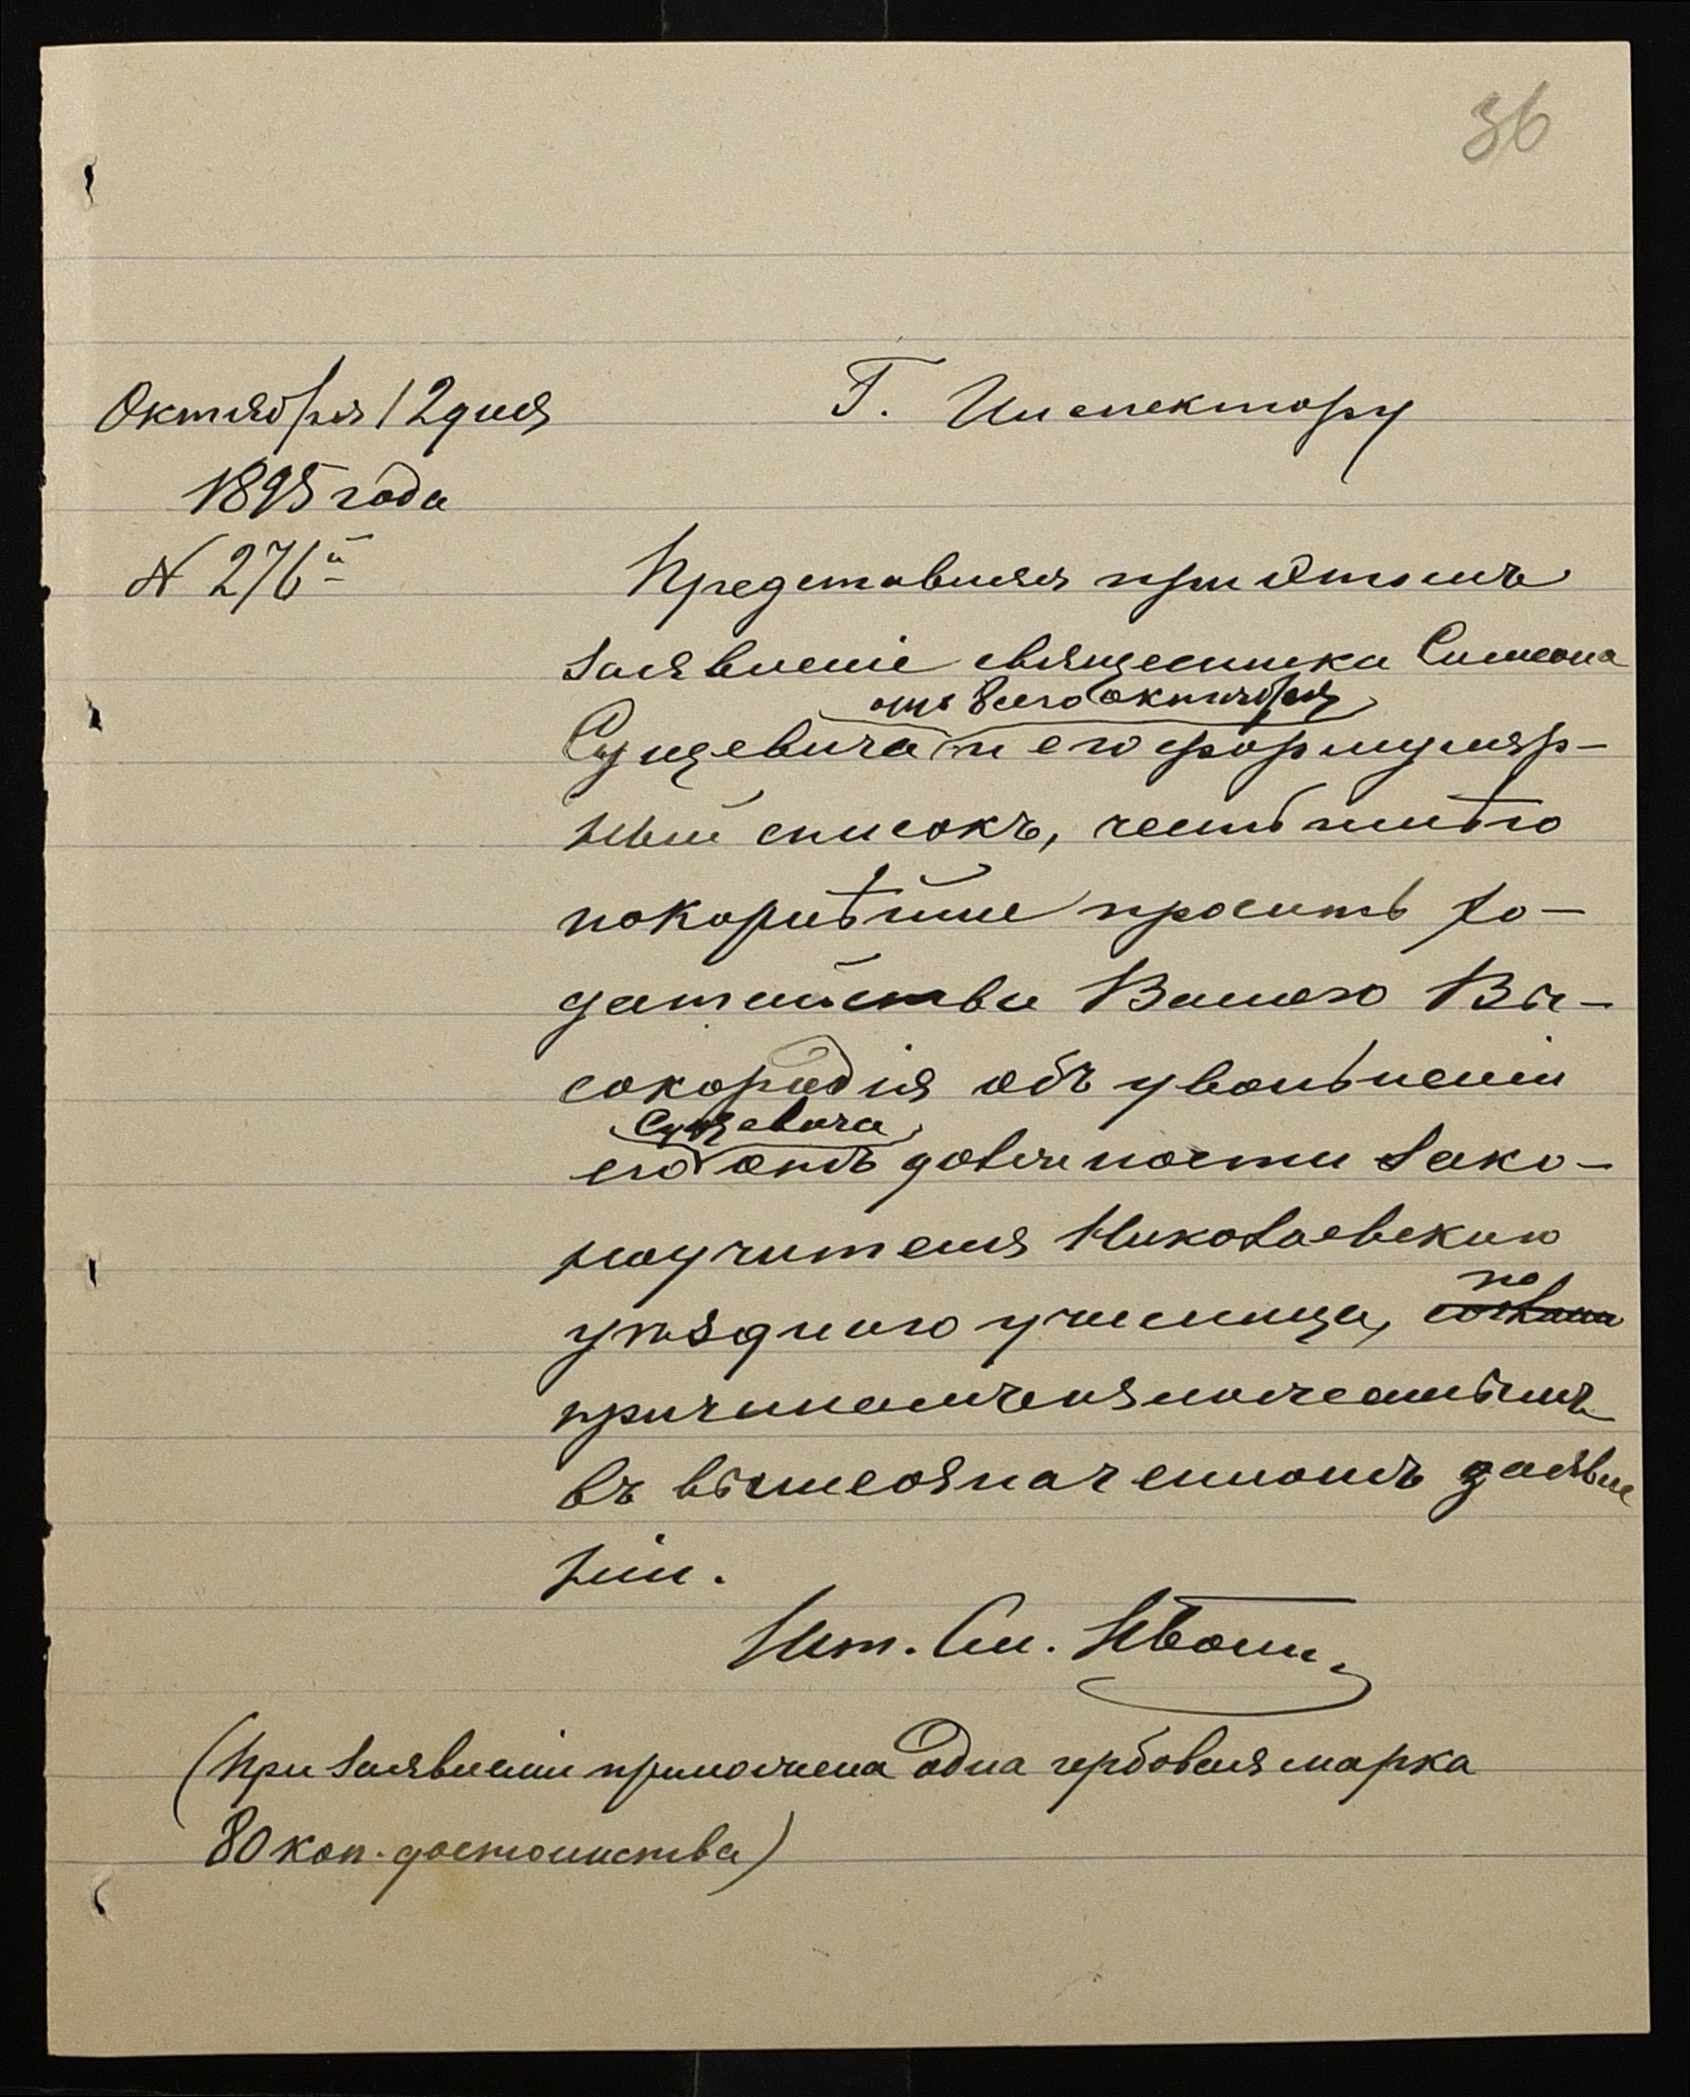 36
Октября 12 дня
1895 года
N 276й
Г. Инспектору
Представляя при этомъ
заявленіе священника Симеона
отъ 8сего октября
Сущевича и его формуляр-
ный списокъ, честь имѣю
покорнѣйше просить хо-
датайства Вашего Вы-
сокородія объ увольненіи
Сущевича
его отъ должности зако-
ноучителя Николаевскаго
уѣзднаго училища, по
причинамъ изложеннымъ
въ вышеозначенномъ заявле
ніи.
Шт. См.
(При заявленіи приложена одна гербовая марка
80 коп. достоинства)